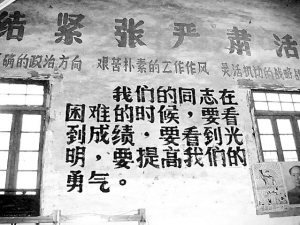 结 紧 张 严 肃 活
确的政治方向 艰苦朴素的工作作风 灵活机动的战略
我们的同志在
困难的时候，要看
到成绩，要看到光
明，要提高我们的
勇气。